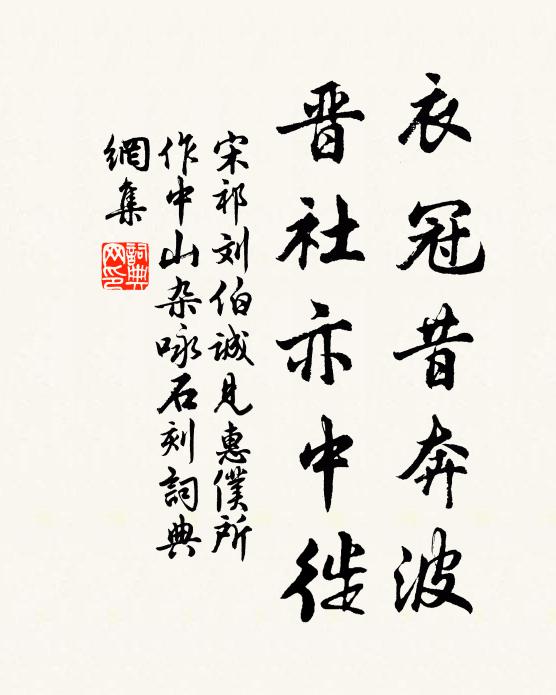 衣冠昔奔波
晋社亦中徙
宋祁刘伯诚見惠僕所
作中山杂咏石刻詞典
網集
詞典网印